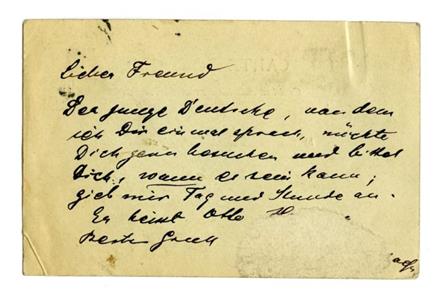 Lieber Freund
Der junge Deutsche, von dem
ich Dir einmal sprach, möchte
Dich gern besuchen und bittet
Dich, wann es sein kann;
gieb mir Tag und Stunde an.
Er heisst Otto H.
Besten Gruss